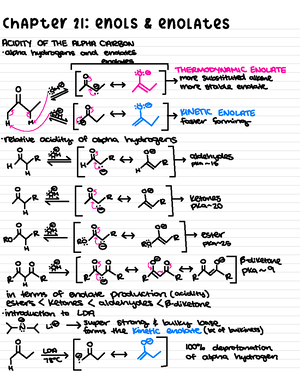 Chapter 21: enols & enolates
ACIDITY OF THE ALPHA CARBON
• alpha hydrogens and enolates
enolates
THERMODYNAMIC ENOLATE
→ more substituted alkene
more stable enolate
KINETIC ENOLATE
faster forming
• relative acidity of alpha hydrogens
→ aldehydes
pka ~
→ ketones
pka ~20
→ ester
pka ~25
→ β-diketone
pka ~ 9
in terms of enolate production (acidity)
esters < ketones < aldehydes < β-diketone
• introduction to LDA
→ super strong & bulky base
forms the kinetic enolate (bc of bulkiness)
LDA
-78°C
100% deprotonation
of alpha hydrogen